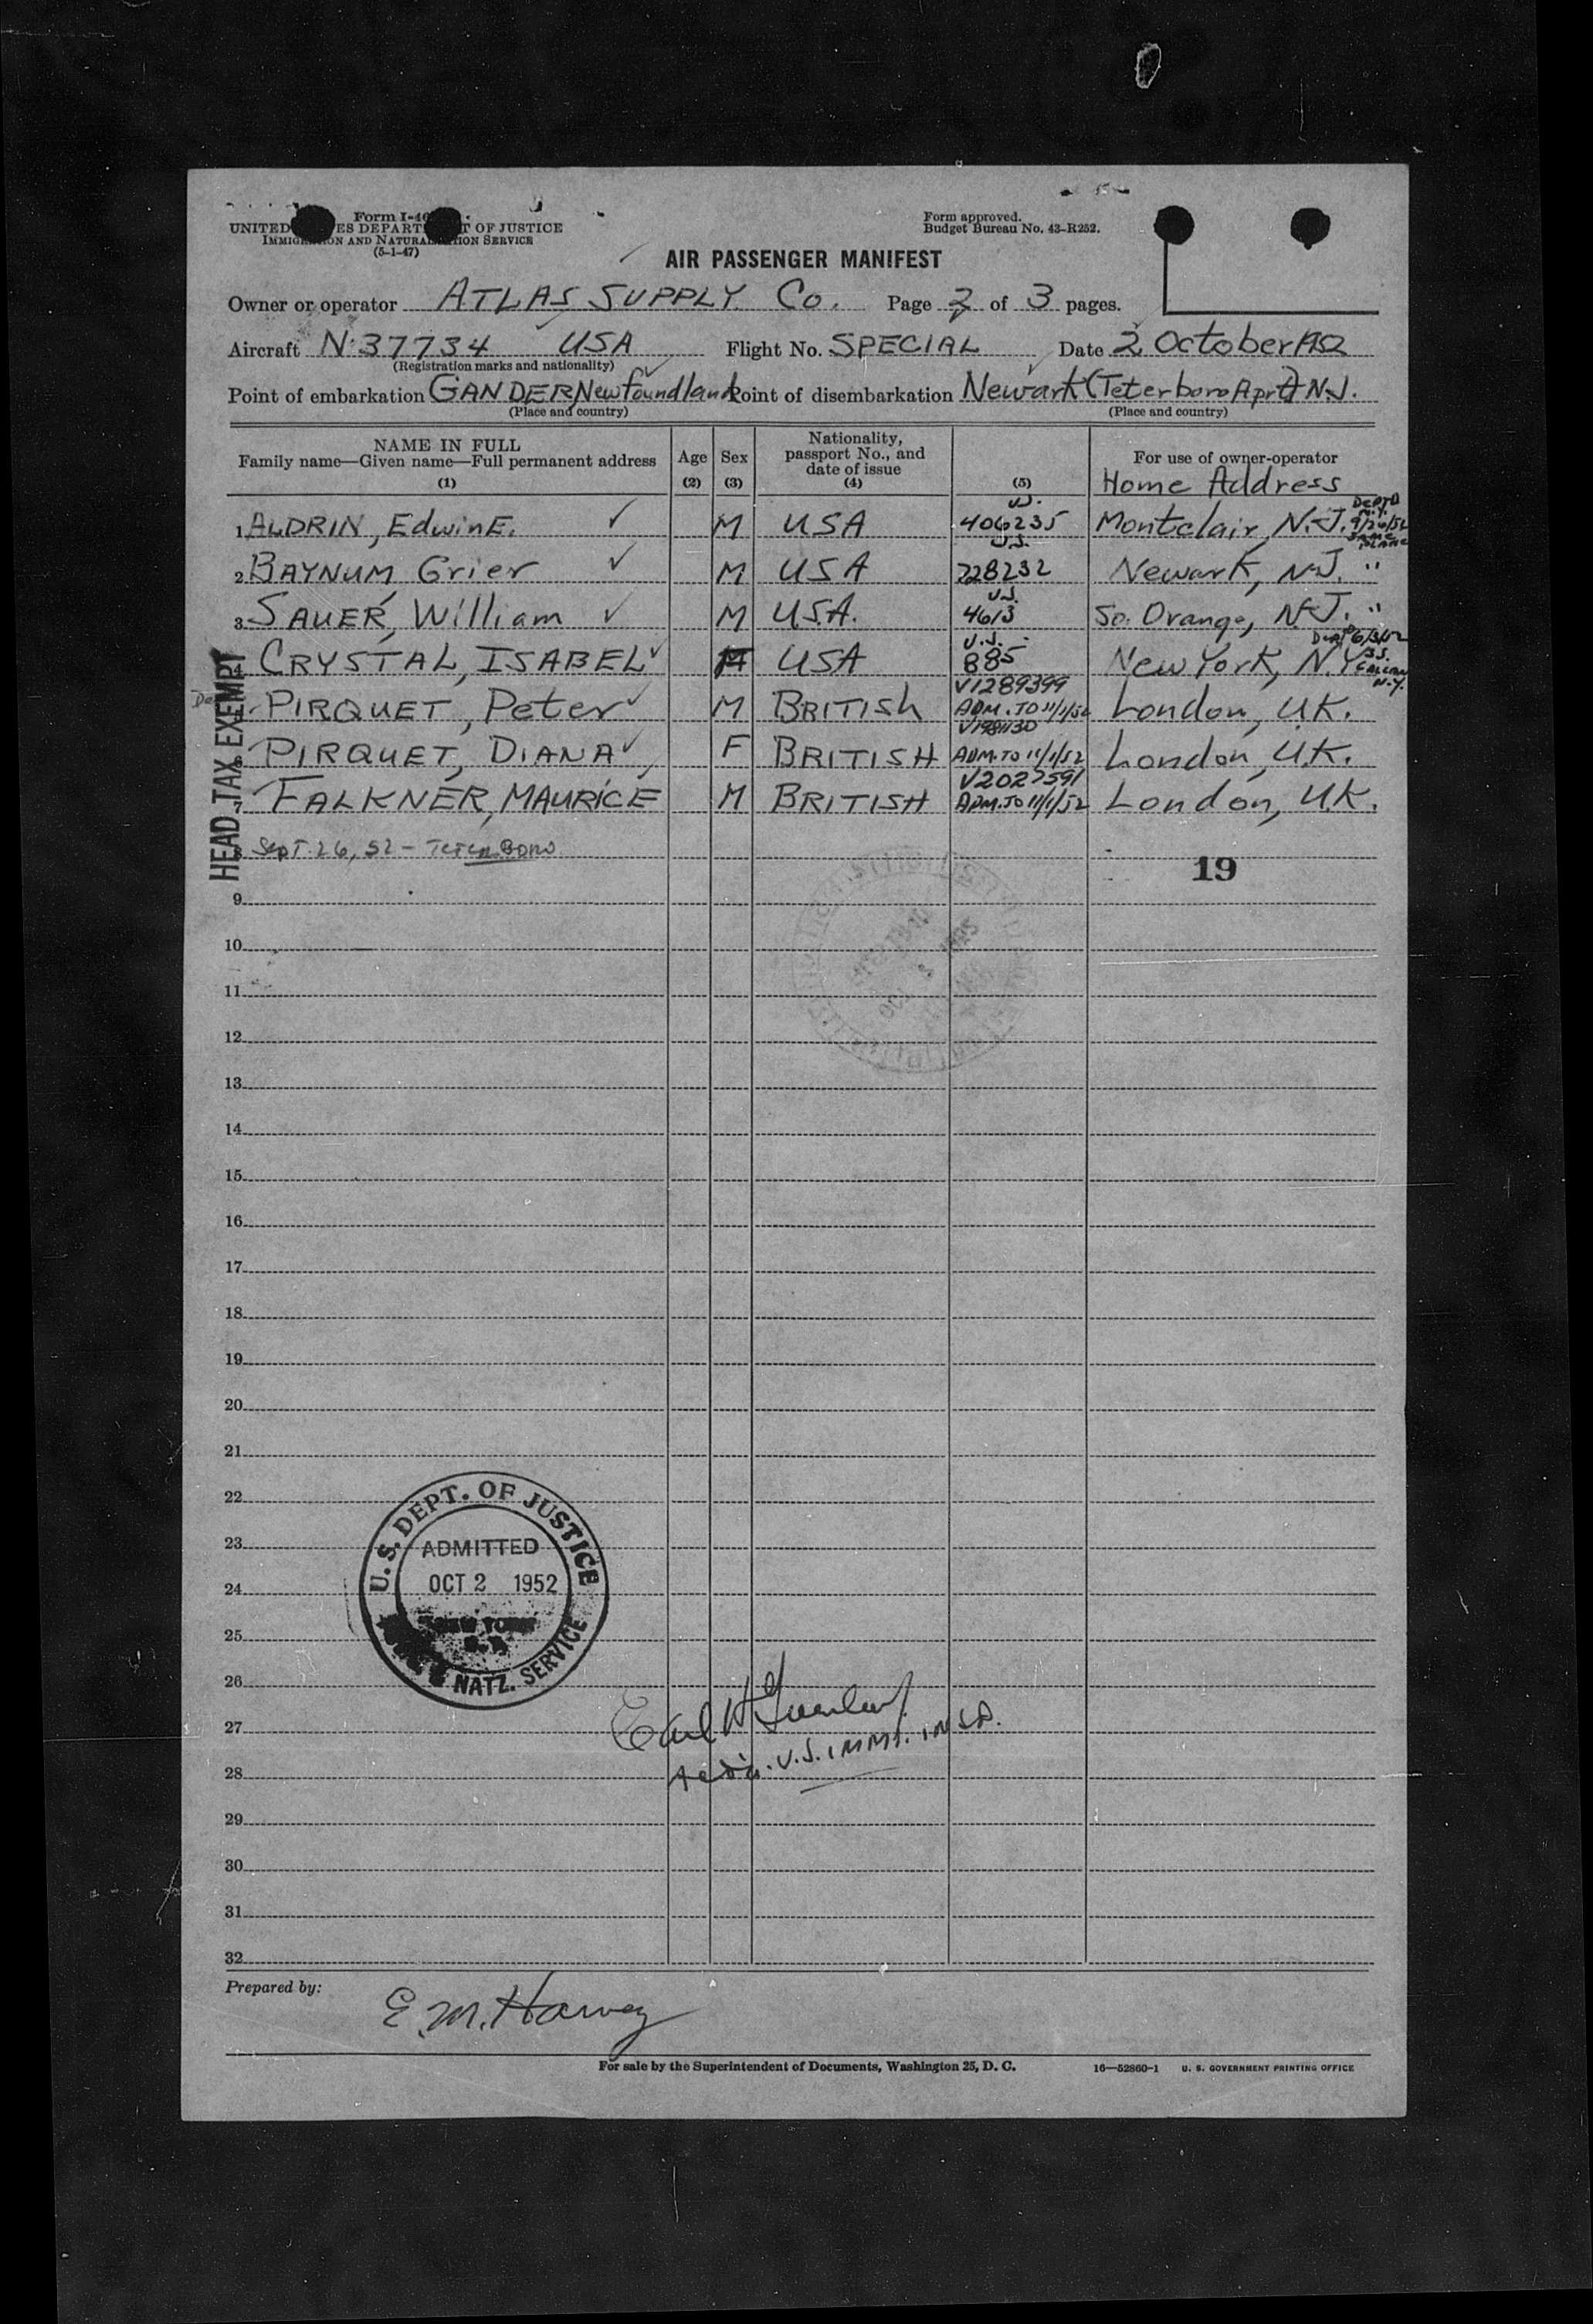 Form I-46
UNITED STATES DEPARTMENT OF JUSTICE
IMMIGRATION AND NATURALIZATION SERVICE
(5-1-47)
Form approved.
Budget Bureau No. 43-R252.
AIR PASSENGER MANIFEST
Owner or operator ATLAS SUPPLY Co. Page 2 of 3 pages.
Aircraft N 37734 USA Flight No. SPECIAL Date 2 October 1952
(Registration marks and nationality)
Point of embarkation GANDER, Newfoundland Point of disembarkation Newark (Teterboro Aprt) N.J.
(Place and country) (Place and country)
NAME IN FULL
Family name—Given name—Full permanent address
(1)
Age
(2)
Sex
(3)
Nationality, passport No., and date of issue
(4)
(5)
For use of owner-operator
Home Address
1 ALDRIN, Edwin E. ✓ M USA U.S. 406235 Montclair, N.J. DEPTD N.Y. 9/26/52 SAME PLANE
2 BAYNUM, Grier ✓ M USA U.S. 728232 Newark, N.J. "
3 SAUER, William ✓ M U.S.A. U.S. 4613 So. Orange, N.J. "
4 CRYSTAL, ISABEL ✓ F USA U.S. 885 New York, N.Y. DEPTD 6/3/52 S.S. N.Y.
PIRQUET, Peter ✓ M BRITISh V1289399 ADM. TO 11/1/52 London, U.K.
6 PIRQUET, DIANA ✓ F BRITISH ADM. TO 11/1/52 London, U.K.
7 FALKNER, MAURICE M BRITISH V2027591 ADM. TO 11/1/52 London, U.K.
8 Sept. 26, 52 - TETERBORO
HEAD TAX EXEMPT
19
9
10
11
12
13
14
15
16
17
18
19
20
21
22
23
24
25
26
27
28
29
30
31
32
U.S. DEPT. OF JUSTICE
ADMITTED
OCT 2 1952
NEW YORK
N.Y.
NATZ. SERVICE
Earl H
U.S. IMMI. INSP.
Prepared by:
E. M. Harvey
For sale by the Superintendent of Documents, Washington 25, D. C.
16—52860-1 U. S. GOVERNMENT PRINTING OFFICE